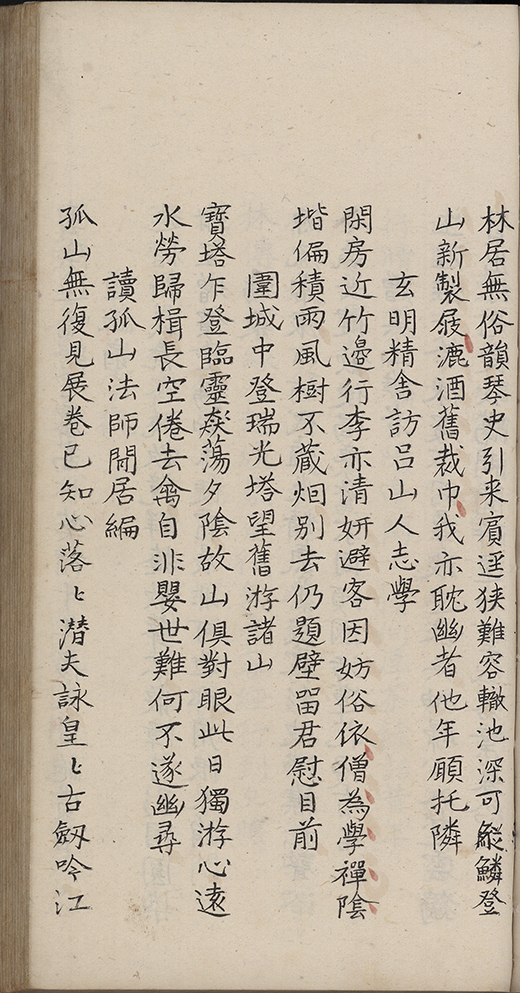 林居無俗韻琴史引来賔逕狭難容轍池深可縱鱗登
山新製屐漉酒舊裁巾我亦耽幽者他年願托隣
玄明精舍訪呂山人志學
閑房近竹邉行李亦清妍避客因妨俗依僧為學禅陰
堦偏積雨風樹不藏烟别去仍題壁留君慰目前
圍城中登瑞光塔望舊游諸山
寳塔乍登臨靈猋蕩夕陰故山俱對眼此日獨游心逺
水勞歸楫長空倦去禽自非嬰世難何不遂幽尋
讀孤山法師閒居編
孤山無復見展卷已知心落〻潜夫詠皇〻古劔吟江